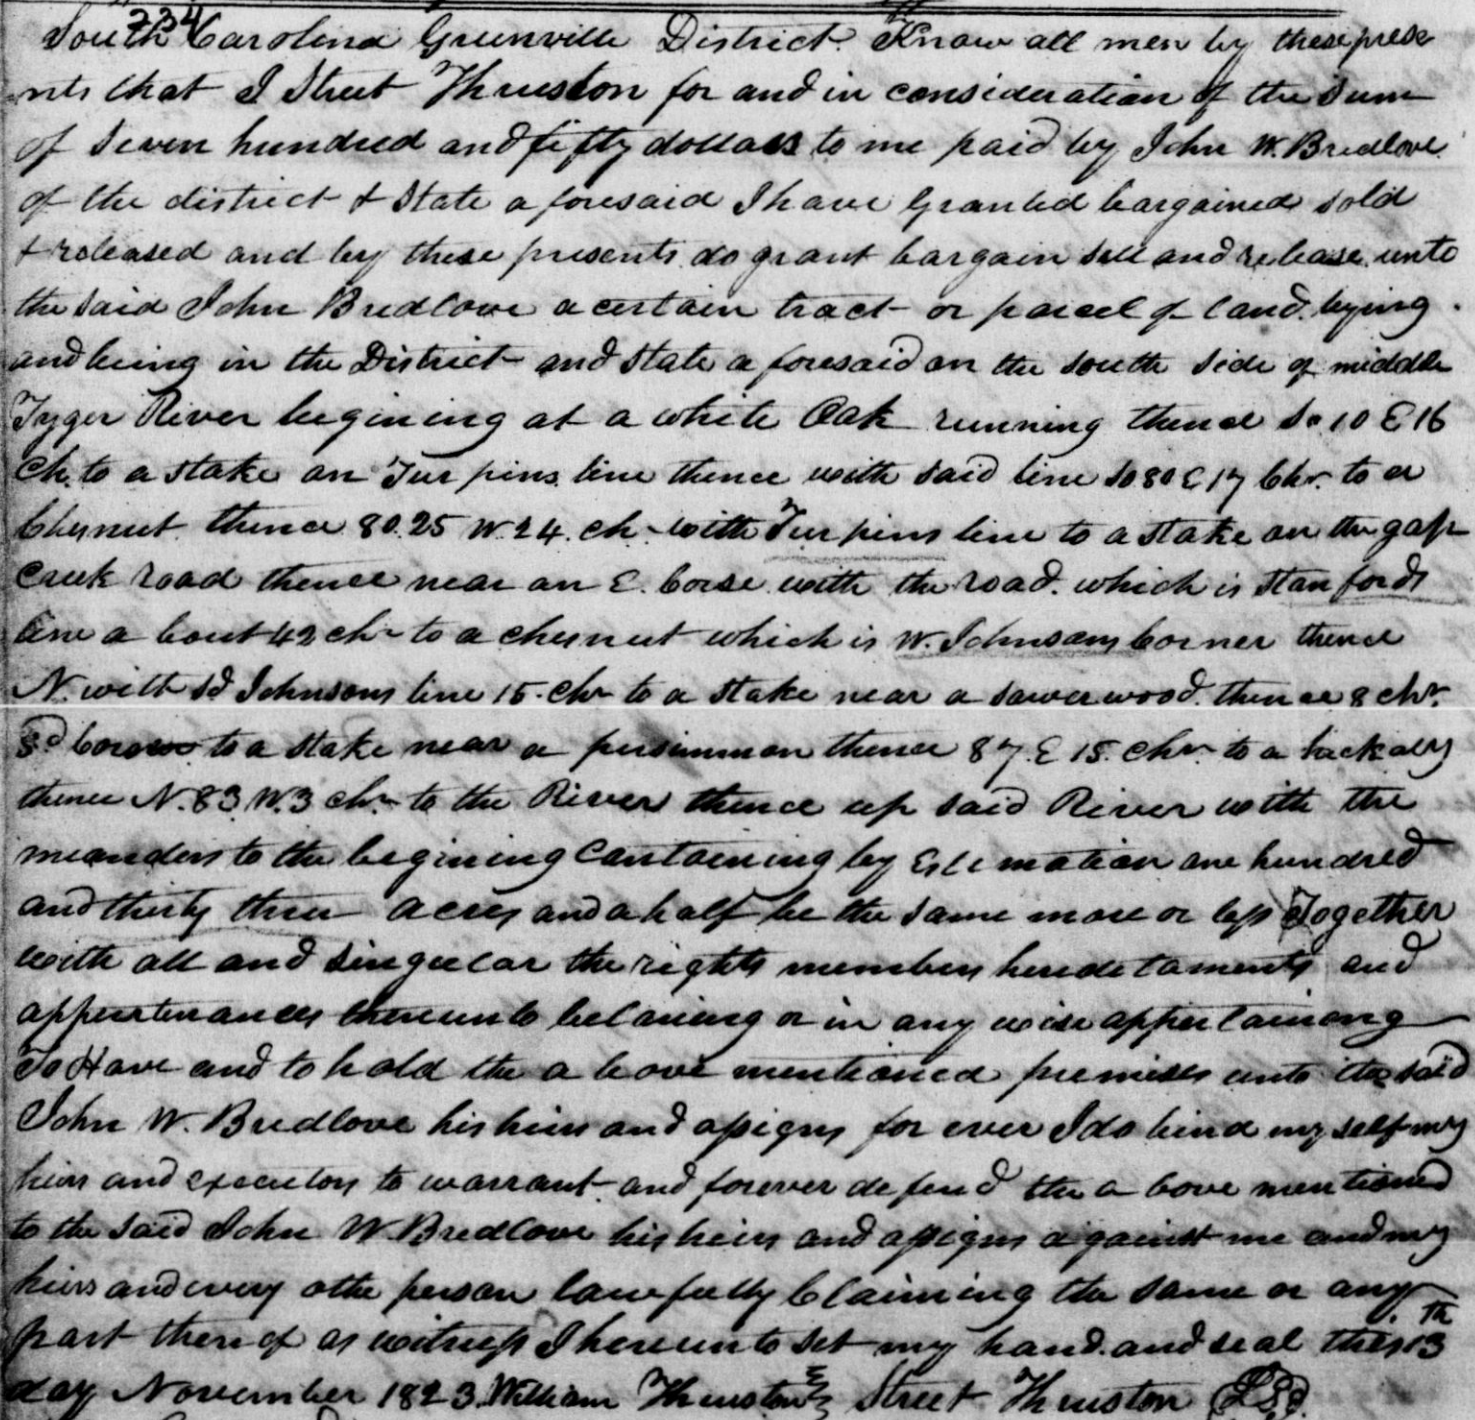 234
South Carolina Greenville District. Know all men by these prese
nts that I Street Thruston for and in consideration of the Sum
of Seven hundred and fifty dollars to me paid by John W. Bredlove
of the district & State a foresaid I have Granted bargained sold
& released and by these presents do grant bargain sell and release unto
the said John Bredlove a certain tract or parcel of land lying
and being in the District and State a foresaid on the South Side of middle
Tyger River begining at a white Oak running thence So 10 E 16
Ch. to a stake on Turpins line thence with said line So 80 E 17 Chs. to a
Chesnut thence 80.25 W. 24. ch. with Turpins line to a stake on the gap
Creek road thence near an E. Corse with the road. which is Stanfords
line a bout 42 chs to a chesnut which is W. Johnsons Corner thence
N. with sd Johnsons line 15. chs to a stake near a sowerwood. thence 8 chs.
to a stake near a persimmon thence 87. E 15. chs. to a
thence N. 83 W. 3 chs to the River thence up said River with the
meanders to the begining Containing by Estimation one hundred
and thirty three acres and a half be the same more or less Together
with all and singular the rights members heredetaments and
appurtenances thereunto beloning or in any wise appertaining
To Have and to hold the a bove mentioned premises unto the said
John W. Bredlove his heirs and assigns for ever I do bind my self my
heirs and executors to warrant and forever defend the a bove mentioned
to the said John W. Bredlove his heirs and assigns against me and my
heirs and every othe person lawfully Claiming the same or any
part there of as witness I hereunto set my hand and seal this 13th
day November 1823. William Thruston Street Thruston